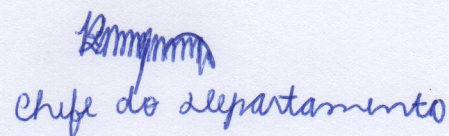 Chefe do Departamento